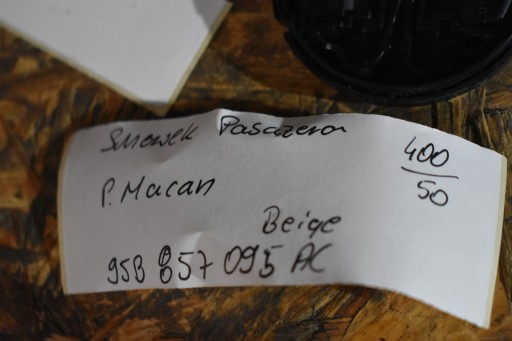 Schowek Pasażera
400
50
P. Macan
Beige
95B 857 095 AC